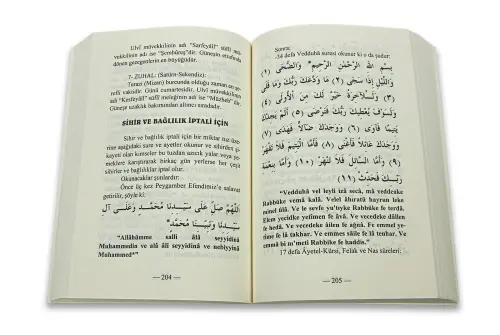 Ulvî müvekkilinin adı "Sarfeyâîl" süflî müvekkilinin ise "Şemhûreş"dir. Güneşin etrafında
dönen gezegenlerin en büyüğüdür.
7- ZUHAL: (Satürn-Sekendiz):
Terazi (Mizan) burcunda olduğu zaman en şerefli vakitidir. Günü cumartesidir. Ulvî müvekkilinin
adı "Kesfeyâîl" süflî meleğinin adı ise "Müzheb" dir.
Güneşe uzaklık bakımından altıncı sıradadır.
SİHİR VE BAĞLILIK İPTALİ İÇİN
Sihir ve bağlılık iptali için bir miktar tuz üzerine
aşağıdaki sure ve ayetler okunur ve şikayeti
olan kimseler bu tuzdan azıcık yalar veya yemeklere
karıştırarak birkaç gün yerlerse her çeşit
sihirler ve bağlılıklar iptal olur.
Okunacaklar şunlardır:
Önce üç kez Peygamber Efendimiz'e salavat
getirilir, şöyle ki:
اَللّٰهُمَّ صَلِّ عَلَى سَيِّدِنَا مُحَمَّدٍ وَعَلَى آلِ
سَيِّدِنَا وَنَبِيِّنَا مُحَمَّدٍ"
"Allâhümme salli âlâ seyyidinâ
Muhammedin ve alâ âli seyyidinâ ve nebiyyinâ
Muhammed"
— 204 —
Sonra:
defa Vedduhâ suresi okunur ki o da şudur:
بِسْمِ اللّٰهِ الرَّحْمٰنِ الرَّحِيمِ" وَالضُّحَى (١)
وَاللَّيْلِ إِذَا سَجَى (٢) مَا وَدَّعَكَ رَبُّكَ وَمَا قَلَى
(٣) وَلَلْآخِرَةُ خَيْرٌ لَكَ مِنَ الْأُولَى (٤)
وَلَسَوْفَ يُعْطِيكَ رَبُّكَ فَتَرْضَى (٥) أَلَمْ يَجِدْكَ
يَتِيمًا فَآوَى (٦) وَوَجَدَكَ ضَالًّا فَهَدَى (٧)
وَوَجَدَكَ عَائِلًا فَأَغْنَى (٨) فَأَمَّا الْيَتِيمَ فَلَا تَقْهَرْ
(٩) وَأَمَّا السَّائِلَ فَلَا تَنْهَرْ (١٠) وَأَمَّا بِنِعْمَةِ
رَبِّكَ فَحَدِّثْ (١١)"
"Vedduhâ vel leyli izâ secâ, mâ veddeake
Rabbüke vemâ kalâ. Velel âhıratü hayrun leke
minel ûlâ. Ve le sevfe yu'tıyke Rabbüke fe terdâ.
Elem yecidke yetîmen fe âvâ. Ve vecedeke dâllen
fe hedâ. Ve vecedeke âilen fe ağnâ. Fe emmel yetime
fe lâ takhar. Ve emmes sâile fe lâ tenhar. Ve emmâ
bi ni'meti Rabbike fe haddis."
17 defa Âyetel-Kürsi, Felâk ve Nas sûreleri:
— 205 —